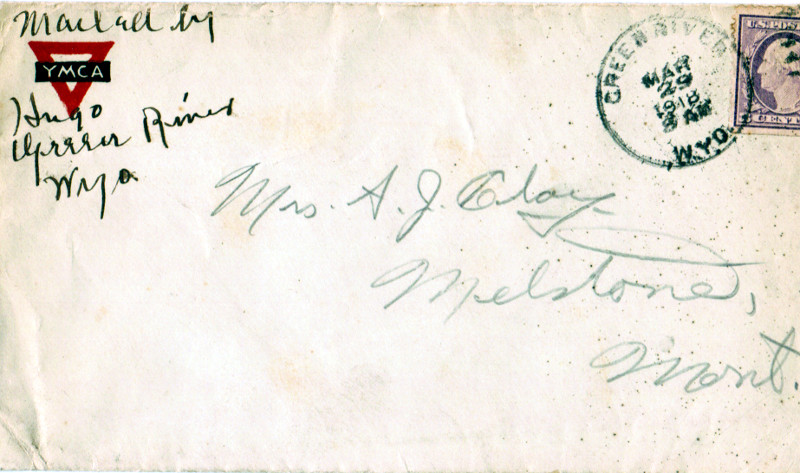 Mailed by
YMCA
Hugo
Green River
Wyo
GREEN RIVER
MAR
29
1918
8 AM
WYO.
U.S. POS
CENTS
Mrs. A. J. Clay
Melstone,
Mont.